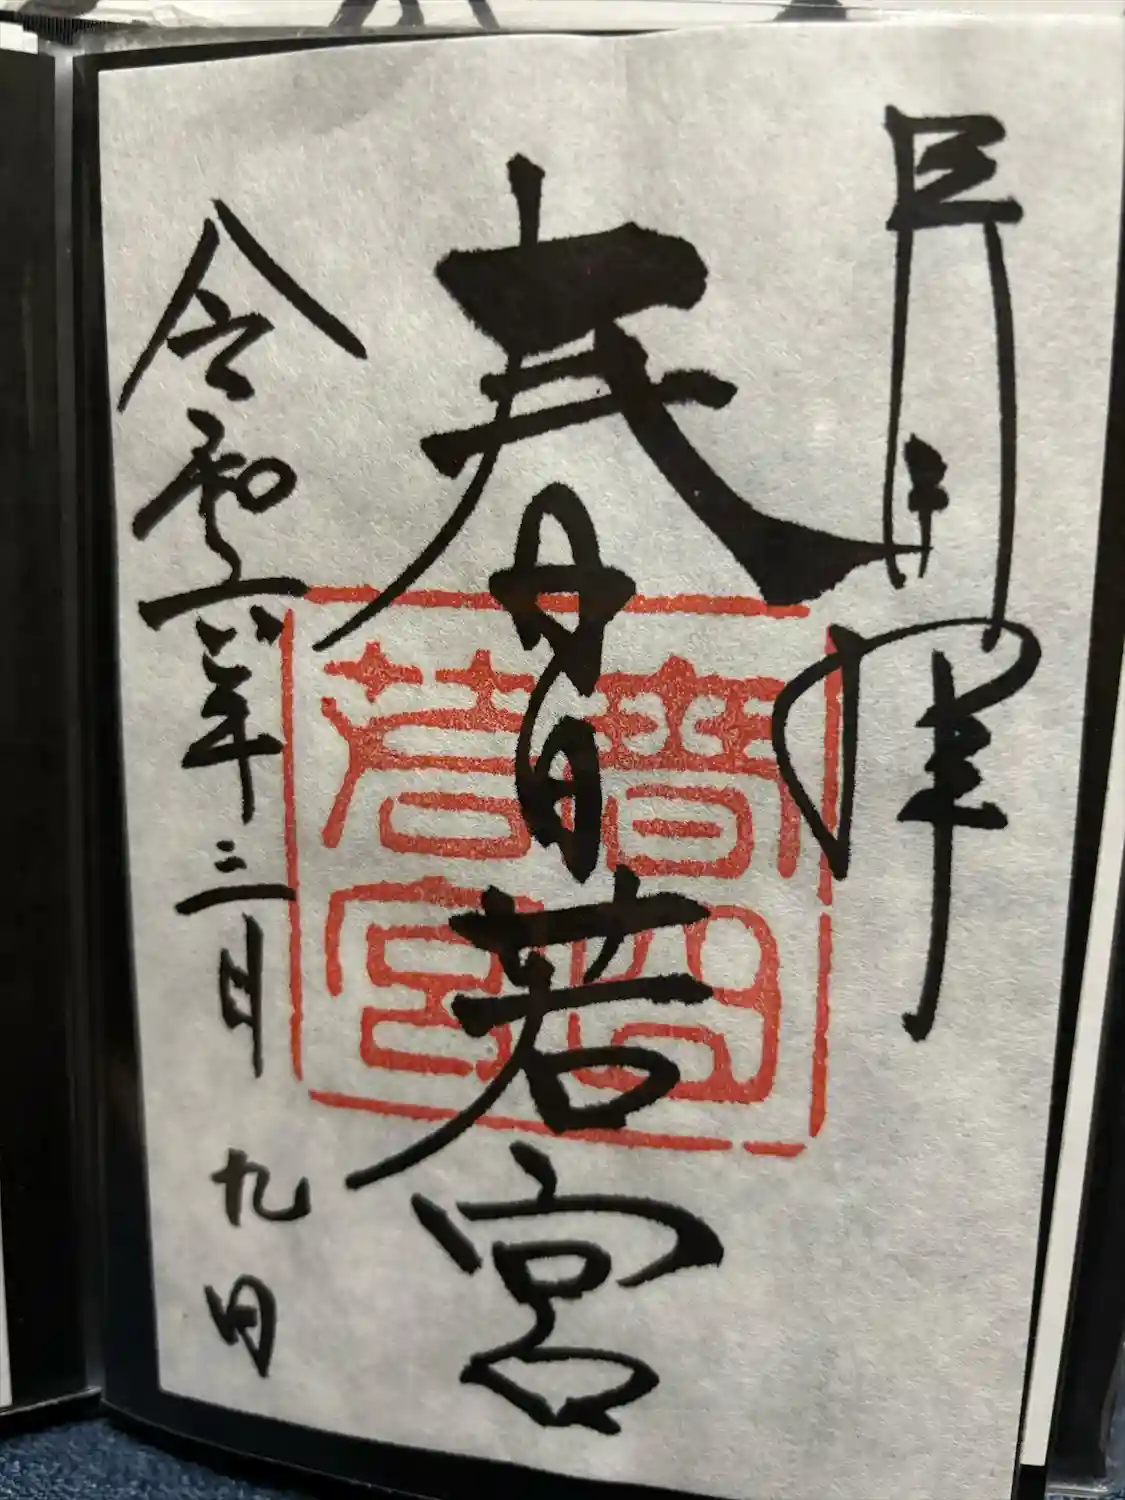 春日若宮
令和六年三月九日
春日
若宮